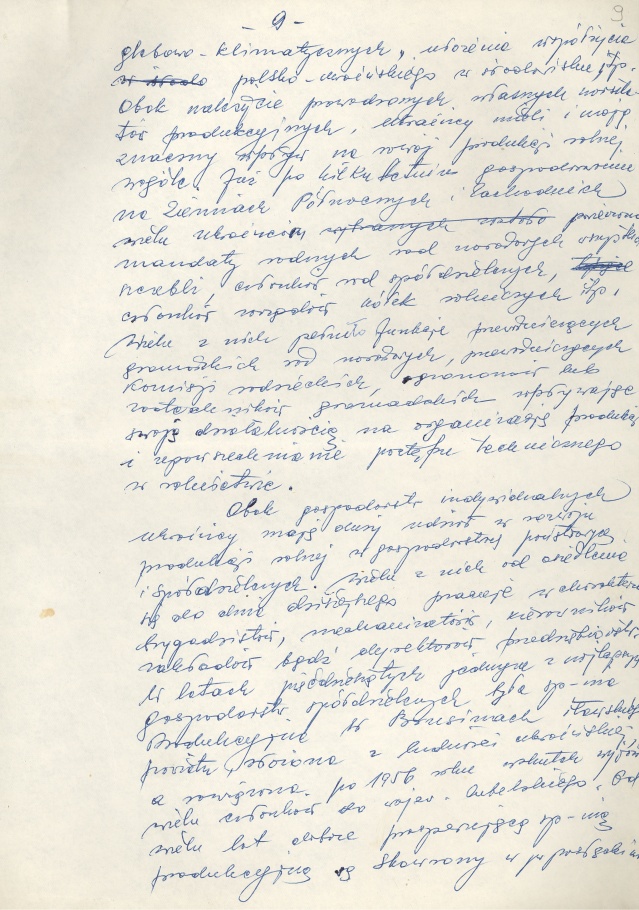 - 9 -
9
glebowo-klimatycznych, ułożenia współżycia
w środo polsko-ukraińskiego w środowisku itp.
Obok należycie prowadzonych własnych
produkcyjnych, ukraińcy mieli i mają
znaczny wpływ na rozwój produkcji rolnej
wogóle. Już po kilku letnim gospodarzeniu
na Ziemiach Północnych i Zachodnich
wielu ukraińców piastowało
mandaty radnych rad narodowych wszystkich
szczebli, członków rad spółdzielczych,
członków zarządów kółek rolniczych itp.
Wielu z nich pełniło funkcje przewodniczących
gromadzkich rad narodowych, przewodniczących
Komisji radzieckich, agronomów lub
zootechników gromadzkich wpływając
swoją działalnością na organizację produkcji
i upowszechnianie postępu technicznego
w rolnictwie.
Obok gospodarstw indywidualnych
ukraińcy mają duży udział w rozwoju
produkcji rolnej w gospodarstwach państwowych
i spółdzielczych. Wielu z nich od osiedlenia
się do dnia dzisiejszego pracuje w charakterze
brygadzistów, mechanizatorów, kierowników
zakładów bądź dyrektorów przedsiębiorstw.
W latach pięćdziesiątych jedną z
gospodarstw spółdzielczych była sp-nia
Produkcyjna w iławskiego
powiatu, złożona z ludności ukraińskiej
a rozwiązana po 1956 roku wskutek
wielu członków do wojew. lubelskiego. Od
wielu lat dobrze prosperującą sp-nią
produkcyjną są Skowrony w